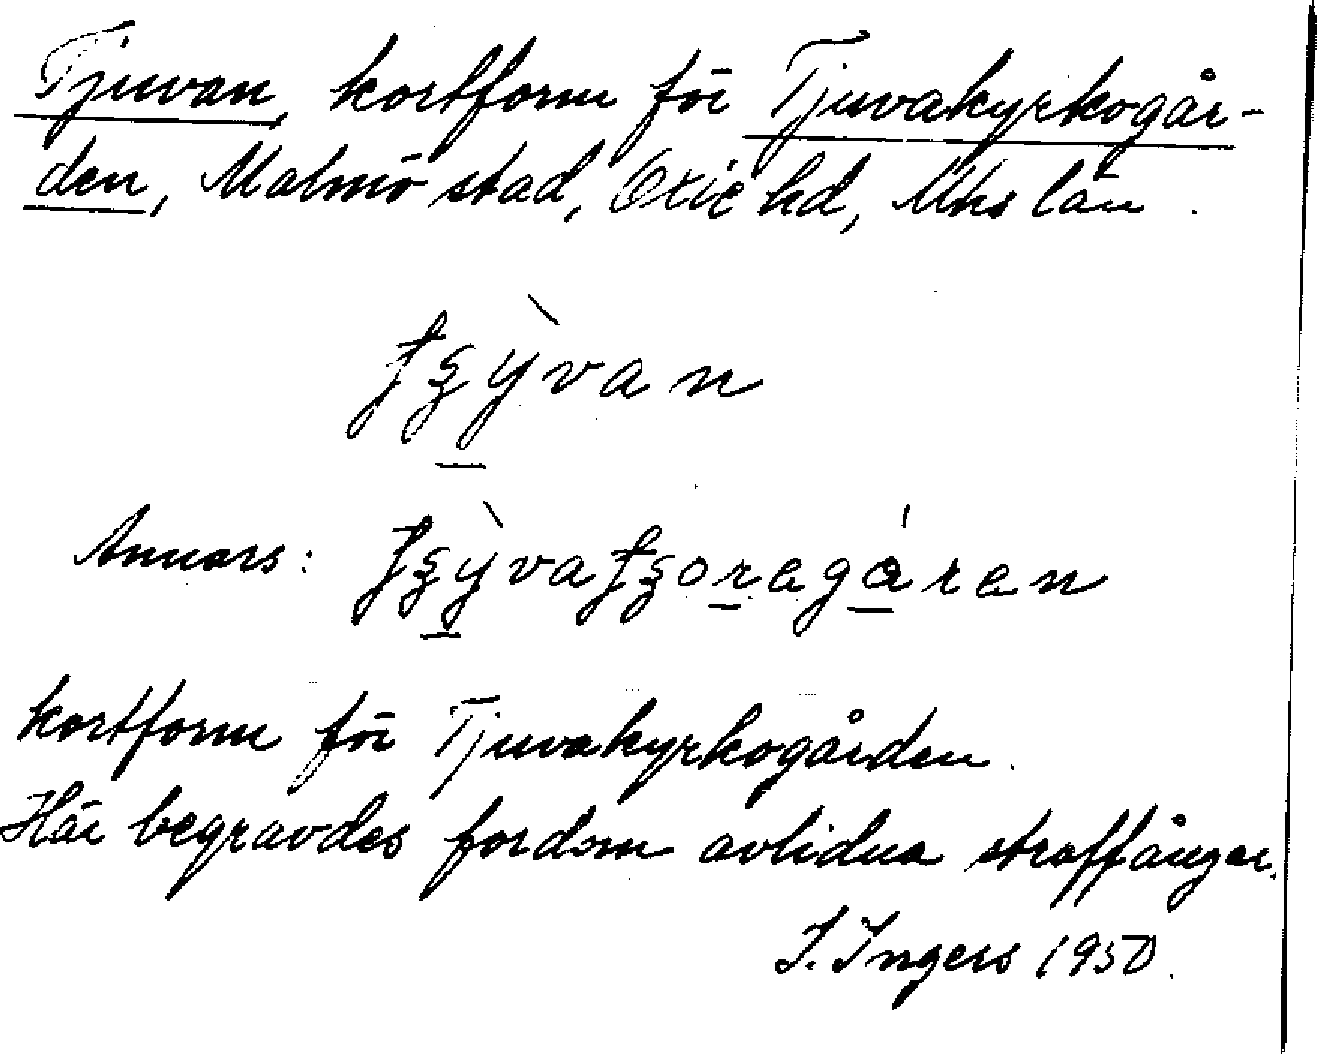 Tjuvan, kortform för Tjuvakyrkogår-
den, Malmö stad, Oxie hd, Mhs län.
Annars:
kortform för Tjuvakyrkogården.
Här begravdes fordom avlidna straffångar.
I. Ingers 1950.